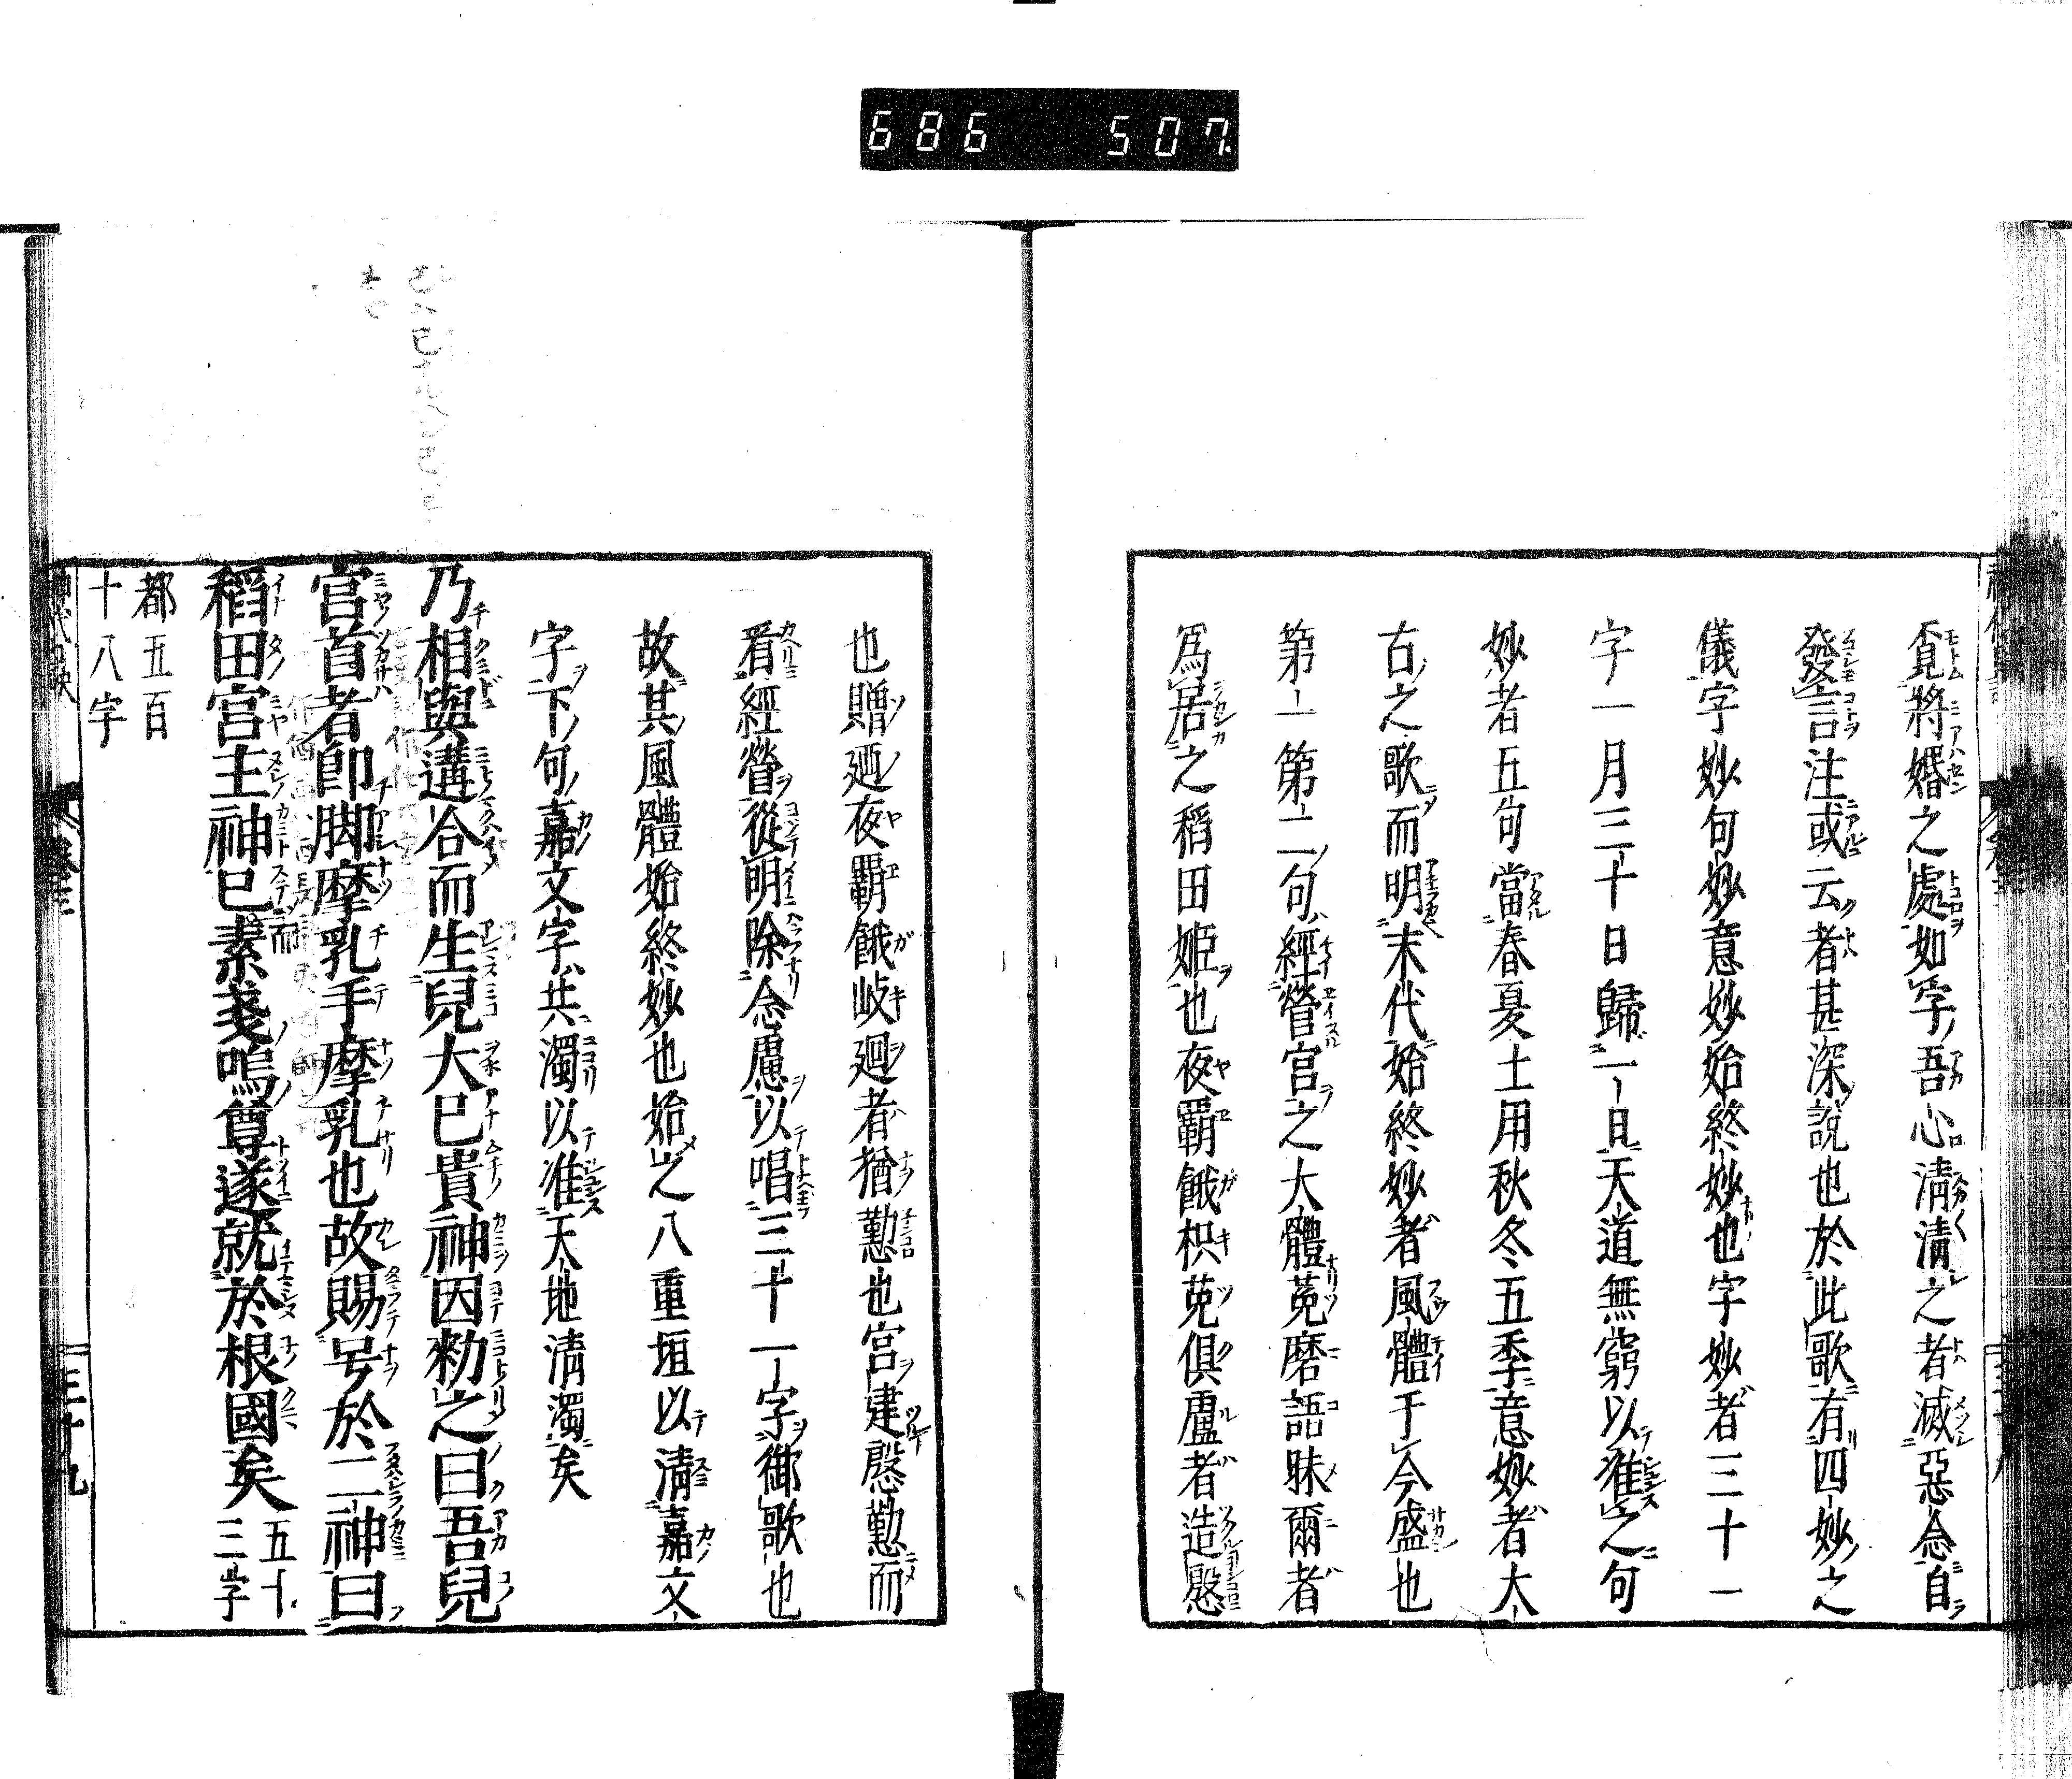 686 507
覔將婚之處如字吾心清清之者滅惡念自
發言注或云者甚深說也於此歌有四妙之
儀字妙句妙意妙始終妙也字妙者三十一
字一月三十日歸一日天道無窮以准之句
妙者五句當春夏土用秋冬五季意妙者大
古之歌而明末代始終妙者風體于今盛也
第一第二句經營宮之大體菟磨語昧爾者
爲居之稻田姫也夜覇餓枳菟俱盧者造慇
也贈廼夜覇餓岐廻者猶懃也宮建慇懃而
看經營從明除念慮以唱三十一字御歌也
故其風體始終妙也始之八重垣以清嘉文
字下句嘉文字共濁以准天地清濁矣
乃相與遘合而生兒大已貴神因勑之曰吾兒
宮首者卽脚摩乳手摩乳也故賜号於二神曰
稻田宮主神巳而素戔嗚尊遂就於根國矣五十三字
都五百
十八字
三十九